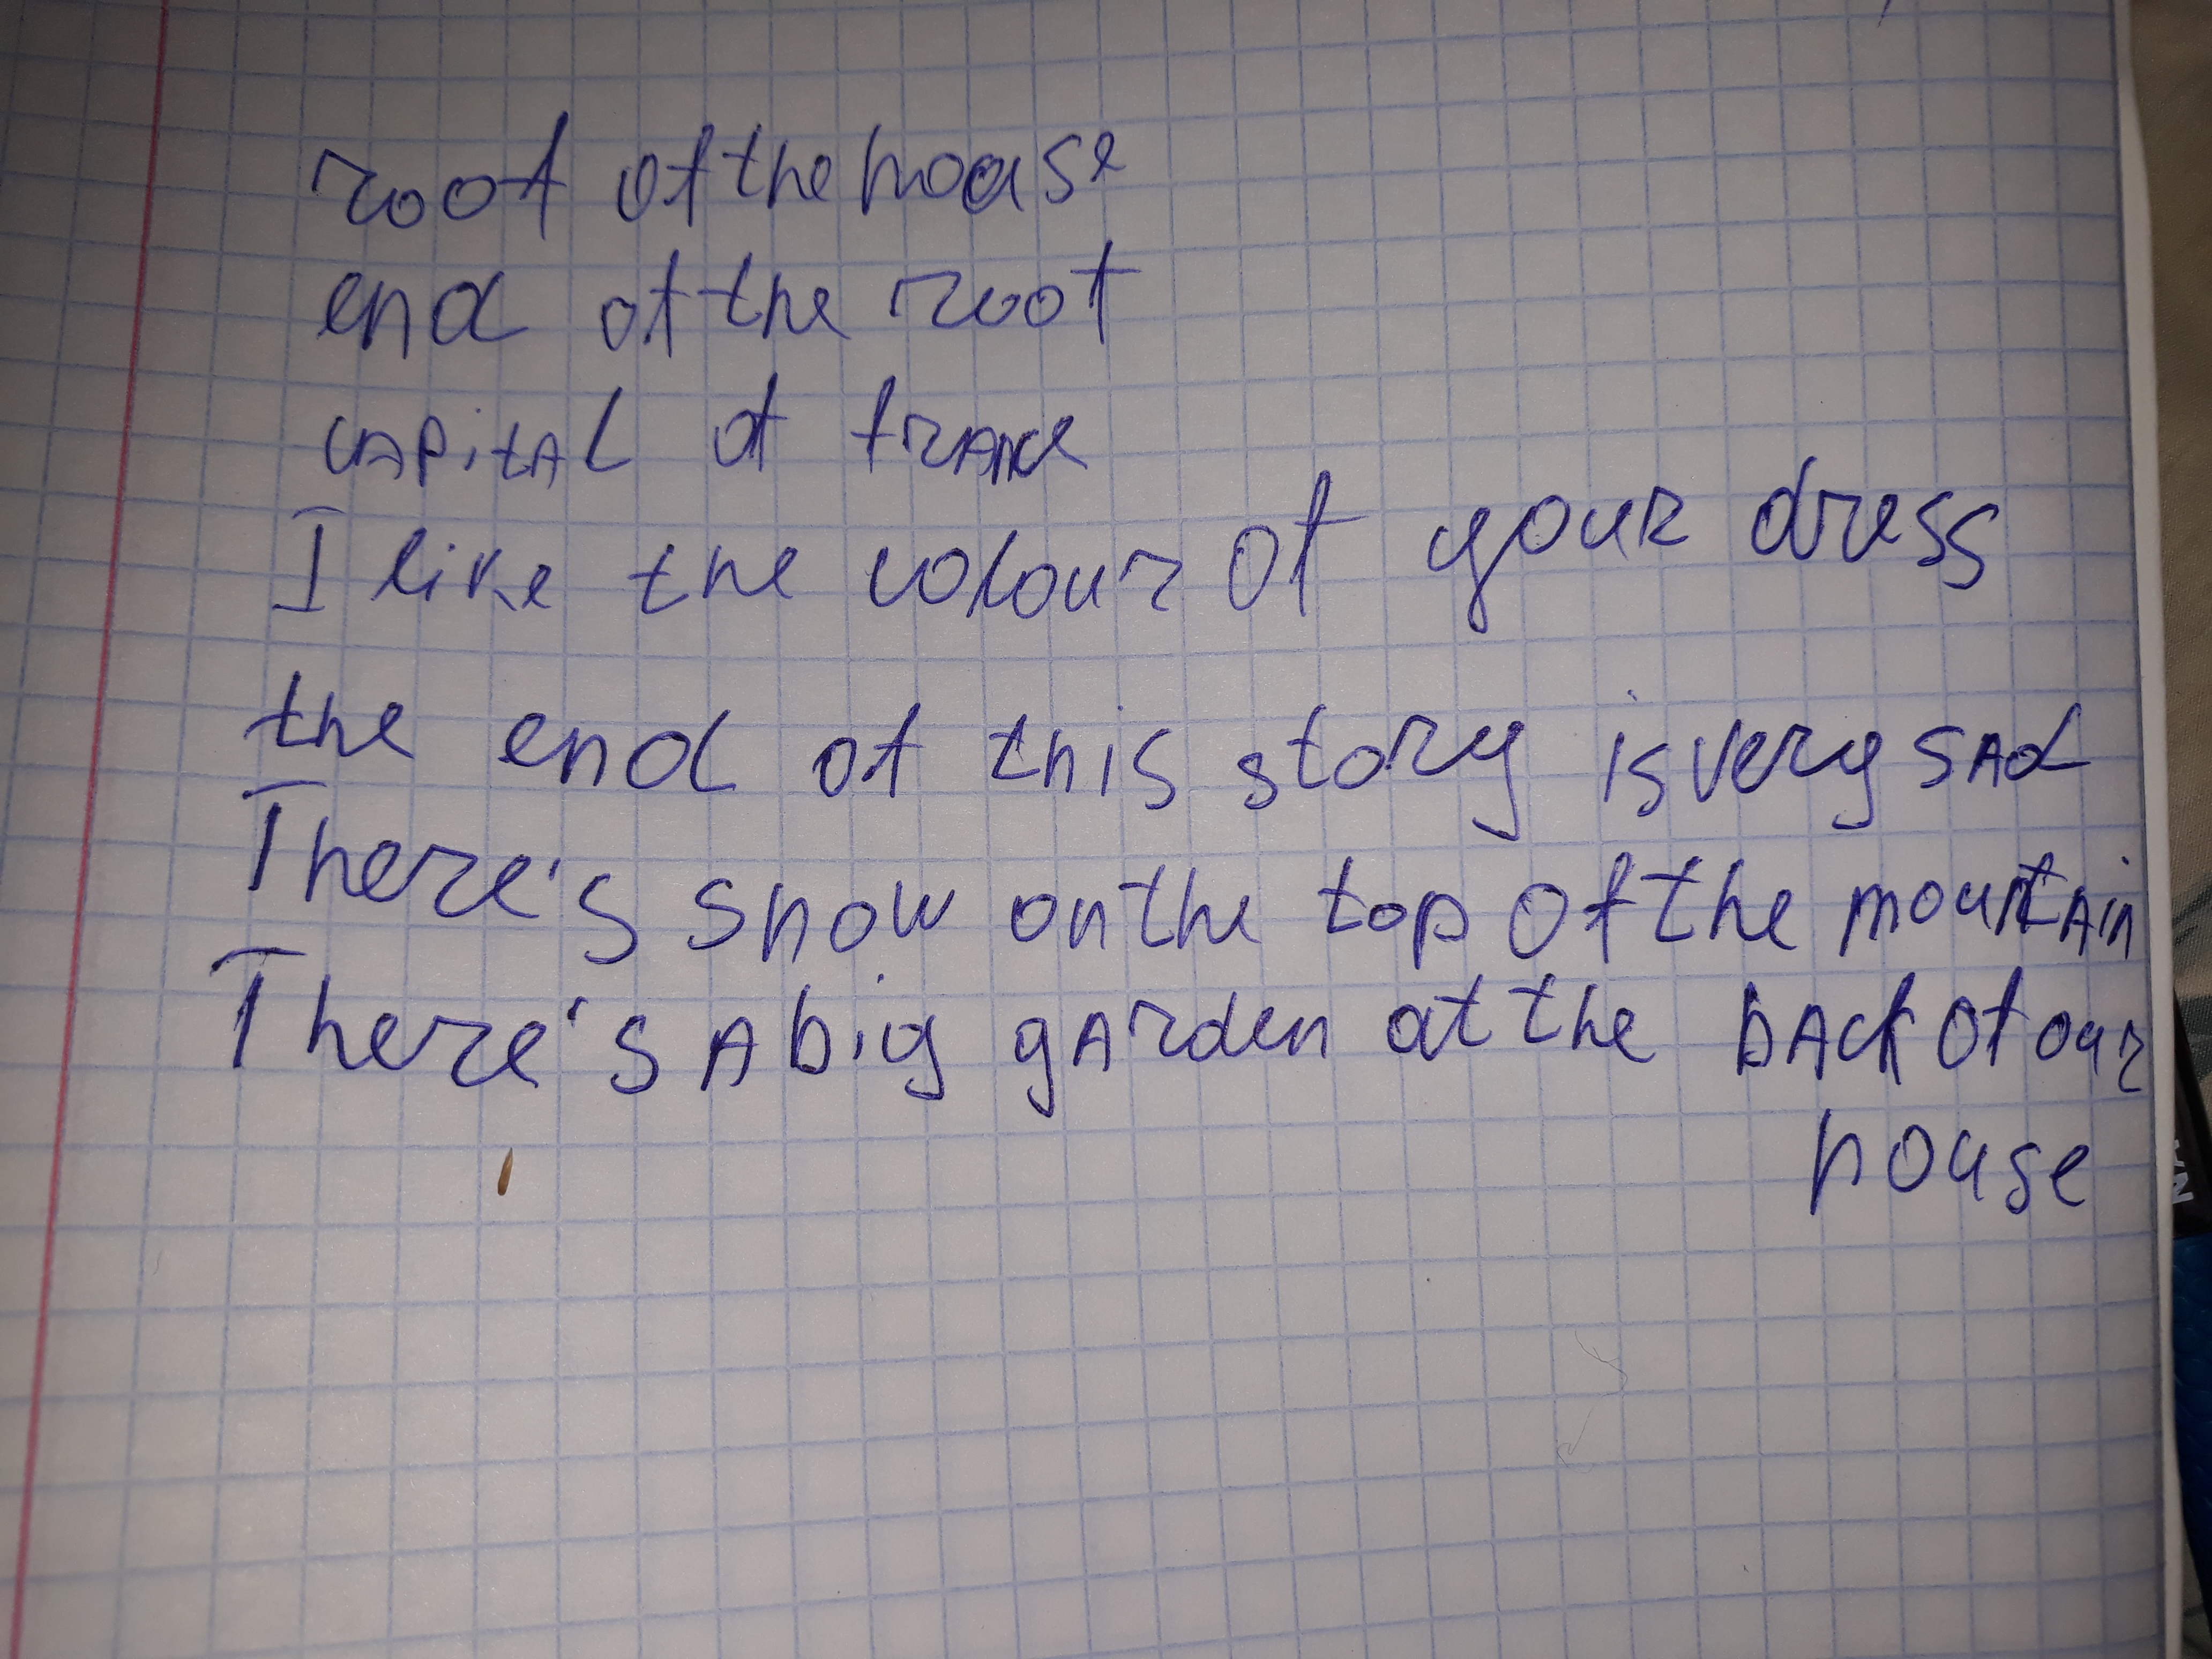 roof of the house
end of the root
capital of france
I like the colour of your dress
the end of this story is very sad
There's snow on the top of the mountain
There's a big garden at the back of our
house